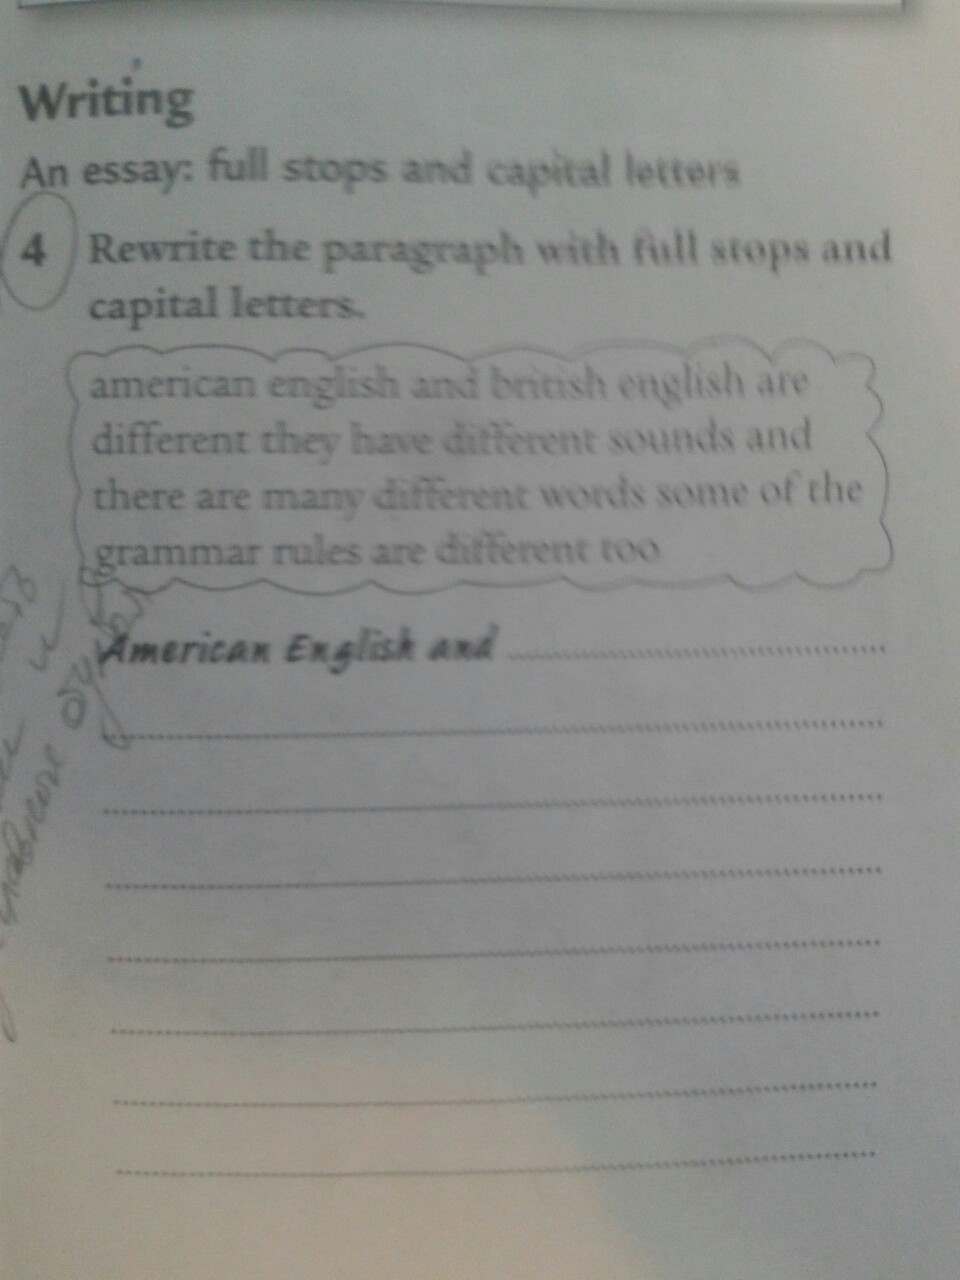 Writing
An essay: full stops and capital letters
4 Rewrite the paragraph with full stops and
capital letters.
american english and british english are
different they have different sounds and
there are many different words some of the
grammar rules are different too
American English and